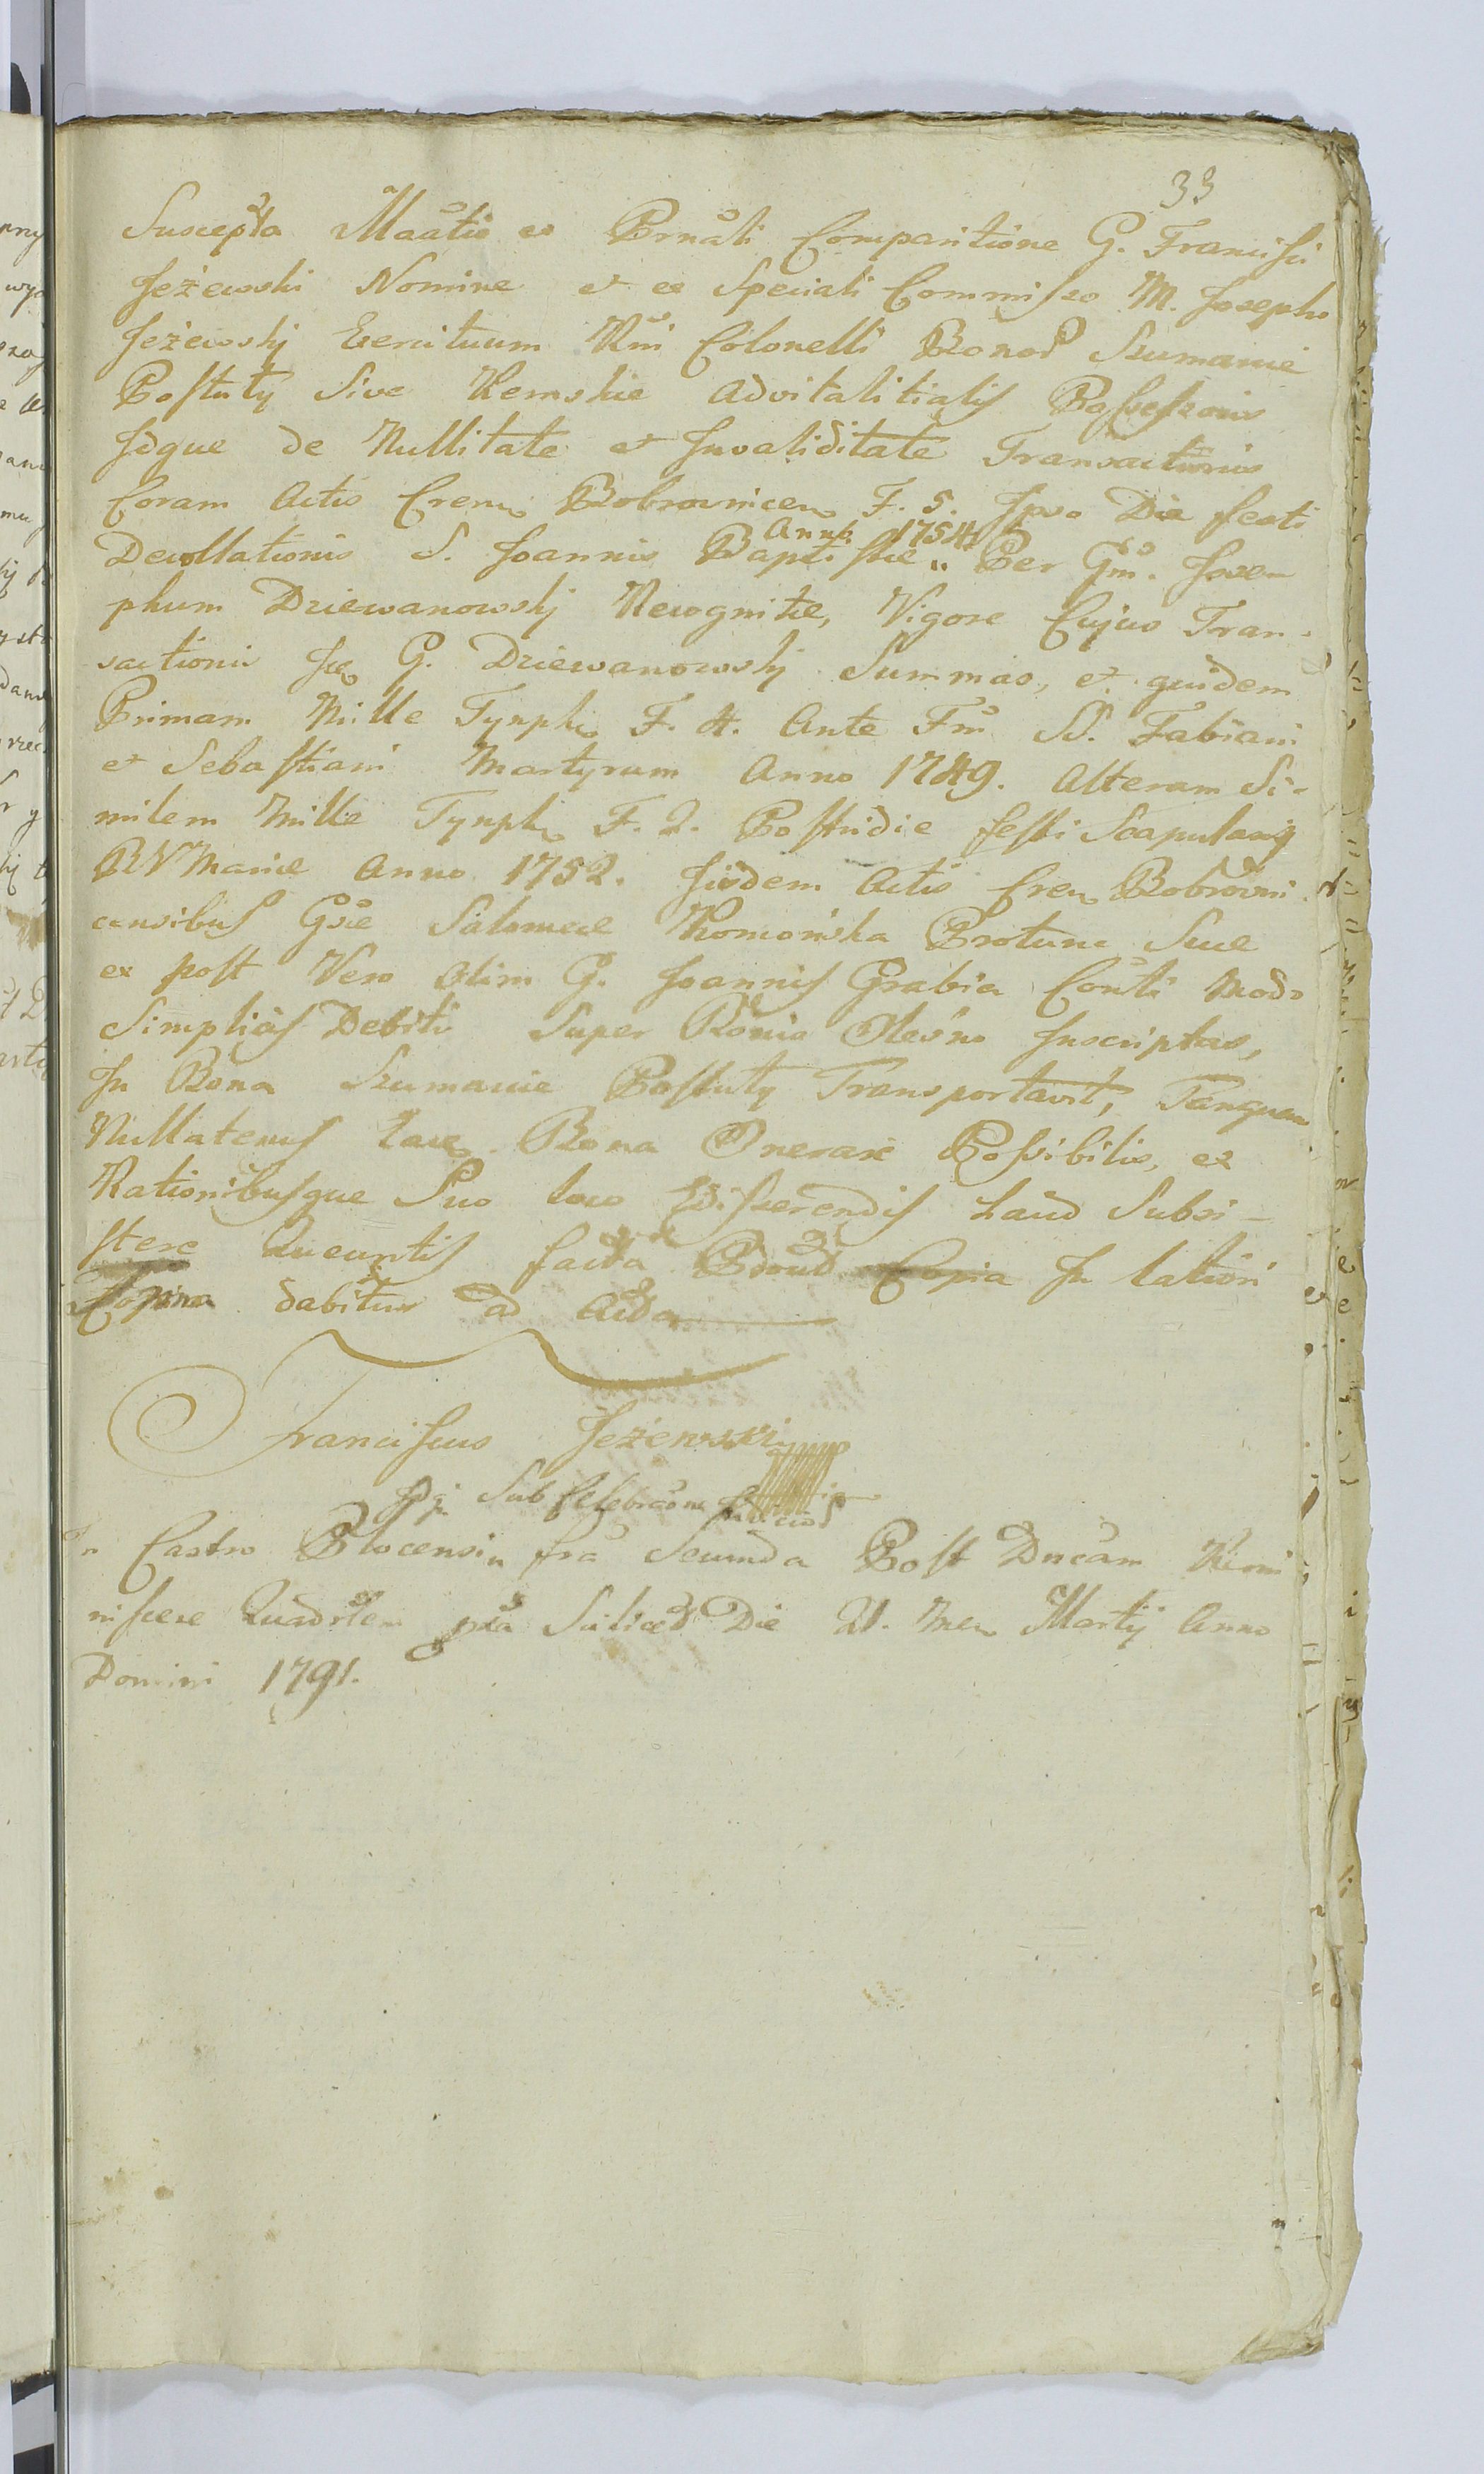 33
Suscepta Maãtio ex Prnãli Comparitione G. Francisci
Jeżewski Nomine et ex Speciali Commisso M. Josephi
Jeżewskj Exercituum Rni Colonelli Bonor Szumanie
Postuty Sive Remskie Advitalitialis Possessoris
Idque de Nullitate et Invaliditate Transactionis
Coram Actis Cren Bobrownicen F. 5. Ipso Die festi
Decollationis S. Joannis Baptistæ „ Anno 1754 Per Gm. Jose-
phum Dziewanowskj Recognitæ, Vigore Cujus Tran-
sactionis G. Dziewanowskj Summas, et quidem
Primam Mille Tynph F. 4. Ante Fm SS. Fabiani
et Sebastiani Martyrum Anno 1749. Alteram Si-
milem Mille Tynph F. 2. Postridie festi Scapularij
BVMariæ Anno 1752. Iisdem Actis Cren Bobrowni-
censibus Gsæ Salomeæ Protunc Suæ
ex post Vero Olim G. Joannis Grabia Conti Modo
Simplicis Debiti Super Bonis Oleśno Inscriptas,
In Bona Szumanie Postuty Transportavit, Tanquam
Nullatenus Bona Onerare Possibilis, ex
Rationibusque Suo loco disserendis haud Subsi-
stere Queuntis facta Copia In latiori
Copiosa dabitur ad Acta
Franciscus Jeżewski
Sub Celebraõne
In Castro Plocensi fra Secunda Post Dncam Remi
niscere Quadrlem pxa Scilicet Die 21. Men Martij Anno
Domini 1791.